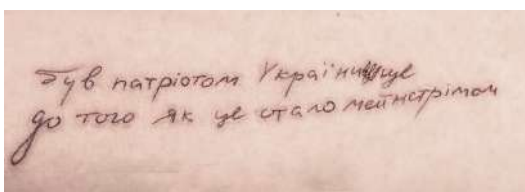 Був патріотом України ще
до того як це стало мейнстрімом